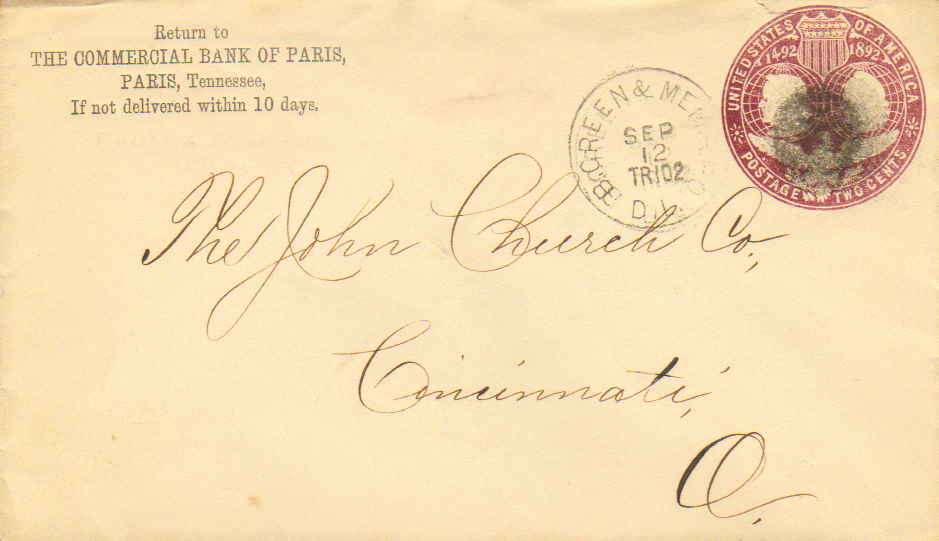 Return to
THE COMMERCIAL BANK OF PARIS,
PARIS, Tennessee,
If not delivered within 10 days.
UNITED STATES OF AMERICA
1492 1892
POSTAGE TWO CENTS
GREEN &
SEP
12
TR102
The John Church Co.,
Cincinnati,
O.